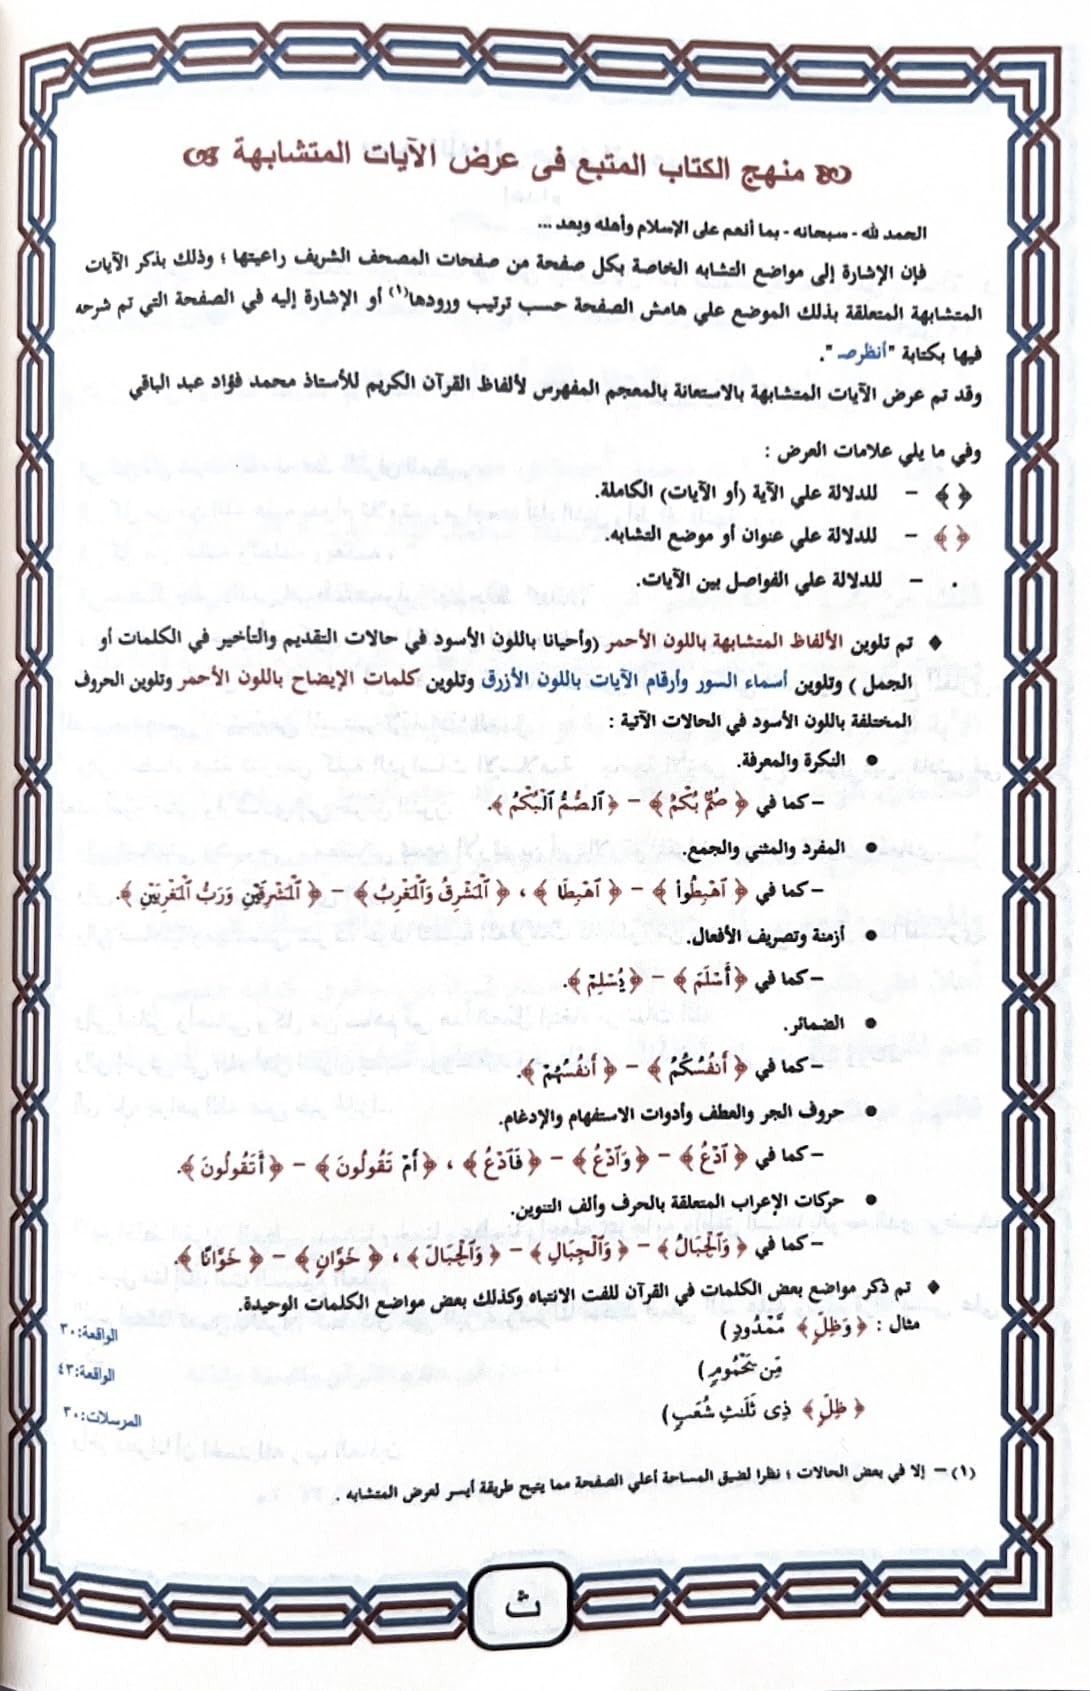 منهج الكتاب المتبع فى عرض الآيات المتشابهة
الحمد لله - سبحانه - بما أنعم على الإسلام وأهله وبعد ...
فإن الإشارة إلى مواضع التشابه الخاصة بكل صفحة من صفحات المصحف الشريف راعيتها ؛ وذلك بذكر الآيات
المتشابهة المتعلقة بذلك الموضع علي هامش الصفحة حسب ترتيب ورودها(١) أو الإشارة إليه في الصفحة التي تم شرحه
فيها بكتابة "أنظرصـ ".
وقد تم عرض الآيات المتشابهة بالاستعانة بالمعجم المفهرس لألفاظ القرآن الكريم للأستاذ محمد فؤاد عبد الباقي
وفي ما يلي علامات العرض :
﴿ ﴾ - للدلالة علي الآية (أو الآيات) الكاملة.
﴿ ﴾ - للدلالة علي عنوان أو موضع التشابه.
. - للدلالة علي الفواصل بين الآيات.
♦ تم تلوين الألفاظ المتشابهة باللون الأحمر (وأحيانا باللون الأسود في حالات التقديم والتأخير في الكلمات أو
الجمل ) وتلوين أسماء السور وأرقام الآيات باللون الأزرق وتلوين كلمات الإيضاح باللون الأحمر وتلوين الحروف
المختلفة باللون الأسود في الحالات الآتية :
● النكرة والمعرفة.
- كما في ﴿ صُمٌّ بُكْمٌ ﴾ - ﴿ ٱلصُّمُّ ٱلْبُكْمُ ﴾.
● المفرد والمثني والجمع.
- كما في ﴿ ٱهْبِطُوا۟ ﴾ - ﴿ ٱهْبِطَا ﴾ ، ﴿ ٱلْمَشْرِقُ وَٱلْمَغْرِبُ ﴾ - ﴿ ٱلْمَشْرِقَيْنِ وَرَبُّ ٱلْمَغْرِبَيْنِ ﴾.
● أزمنة وتصريف الأفعال.
- كما في ﴿ أَسْلَمَ ﴾ - ﴿ يُسْلِمْ ﴾.
● الضمائر.
- كما في ﴿ أَنفُسَكُمْ ﴾ - ﴿ أَنفُسَهُمْ ﴾.
● حروف الجر والعطف وأدوات الاستفهام والإدغام.
- كما في ﴿ ٱدْعُ ﴾ - ﴿ وَٱدْعُ ﴾ - ﴿ فَٱدْعُ ﴾ ، ﴿ أَمْ تَقُولُونَ ﴾ - ﴿ أَتَقُولُونَ ﴾.
● حركات الإعراب المتعلقة بالحرف وألف التنوين.
- كما في ﴿ وَٱلْجِبَالُ ﴾ - ﴿ وَٱلْجِبَالِ ﴾ - ﴿ وَٱلْجِبَالَ ﴾ ، ﴿ خَوَّانٍ ﴾ - ﴿ خَوَّانًا ﴾.
♦ تم ذكر مواضع بعض الكلمات في القرآن للفت الانتباه وكذلك بعض مواضع الكلمات الوحيدة.
مثال : ﴿ وَظِلٍّ ﴾ مَّمْدُودٍ ) الواقعة:٣٠
مِّن يَحْمُومٍ ) الواقعة:٤٣
﴿ ظِلٍّ ﴾ ذِى ثَلَٰثِ شُعَبٍ ) المرسلات:٣٠
(١) - إلا في بعض الحالات ؛ نظرا لضيق المساحة أعلي الصفحة مما يتيح طريقة أيسر لعرض المتشابه .
ث